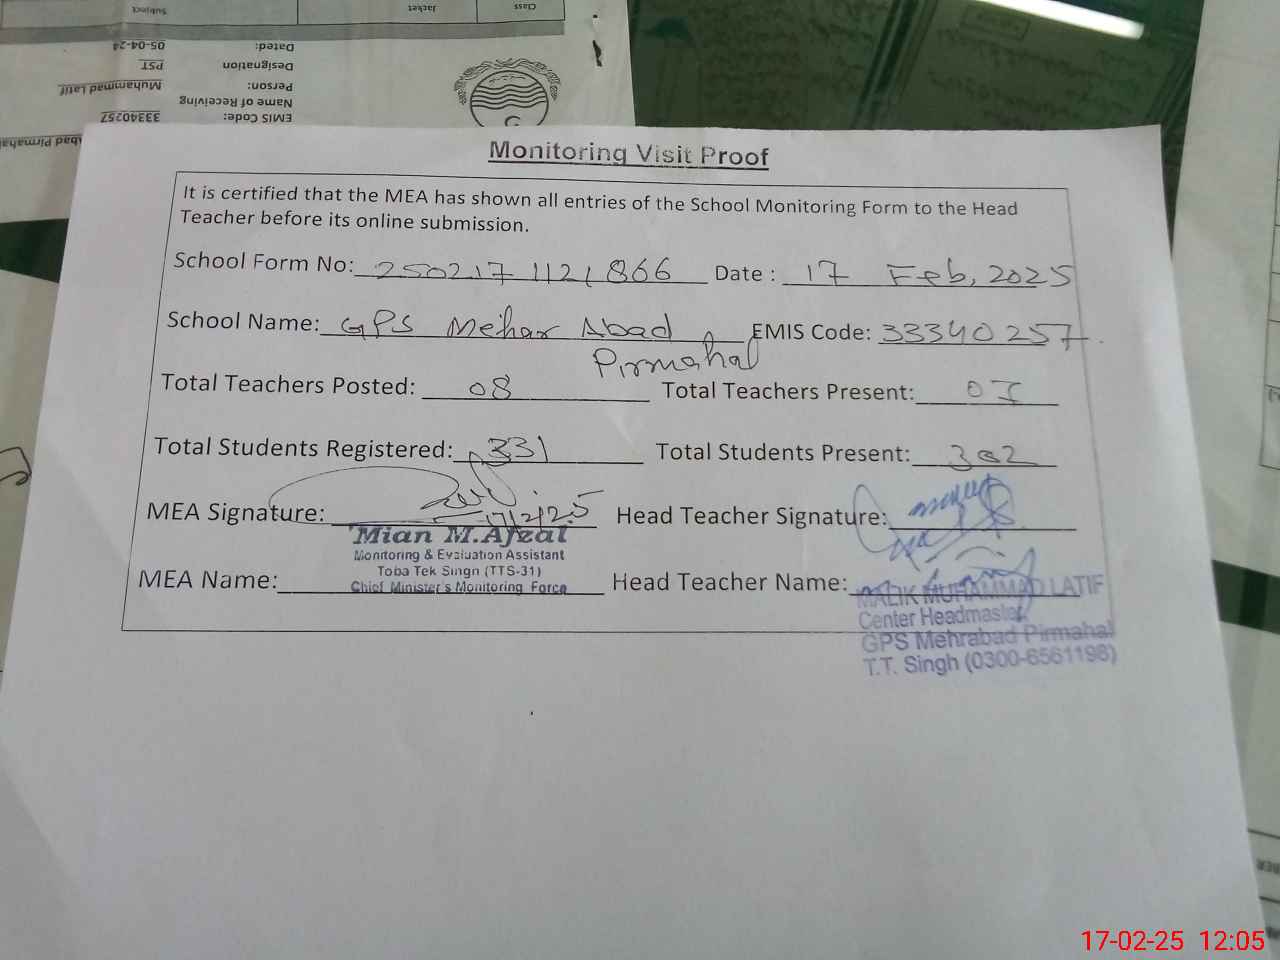 Class
Jacket
Subject
Dated:
05-04-24
Designation
PST
Name of Receiving
Person:
Muhammad Latif
EMIS Code:
33340257
abad Pirmahal
Monitoring Visit Proof
It is certified that the MEA has shown all entries of the School Monitoring Form to the Head
Teacher before its online submission.
School Form No: 250217 1121866 Date : 17 Feb, 2025
School Name: GPS Mehar Abad EMIS Code: 33340257.
Pirmahal
Total Teachers Posted: 08 Total Teachers Present:
Total Students Registered: 331 Total Students Present: 302
MEA Signature: 17/2/25 Head Teacher Signature:
Mian M.Afzal
Monitoring & Evaluation Assistant
Toba Tek Singh (TTS-31)
MEA Name: Chief Minister's Monitoring Force Head Teacher Name: MALIK MUHAMMAD LATIF
Center Headmaster
GPS Mehrabad Pirmahal
T.T. Singh (0300-6561198)
17-02-25 12:05